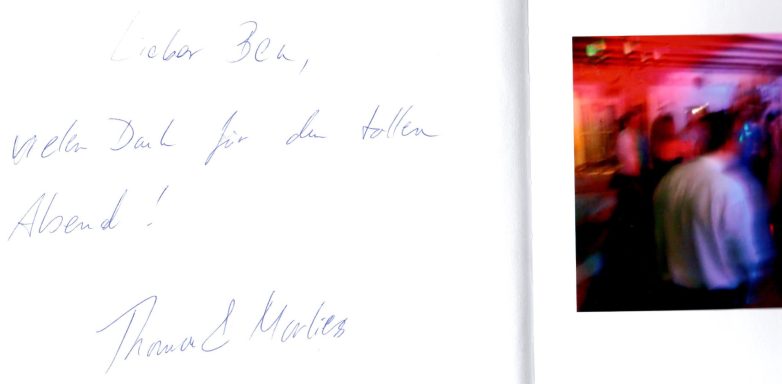 Lieber Ben,
vielen Dank für den tollen
Abend!
Thomas & Marlies